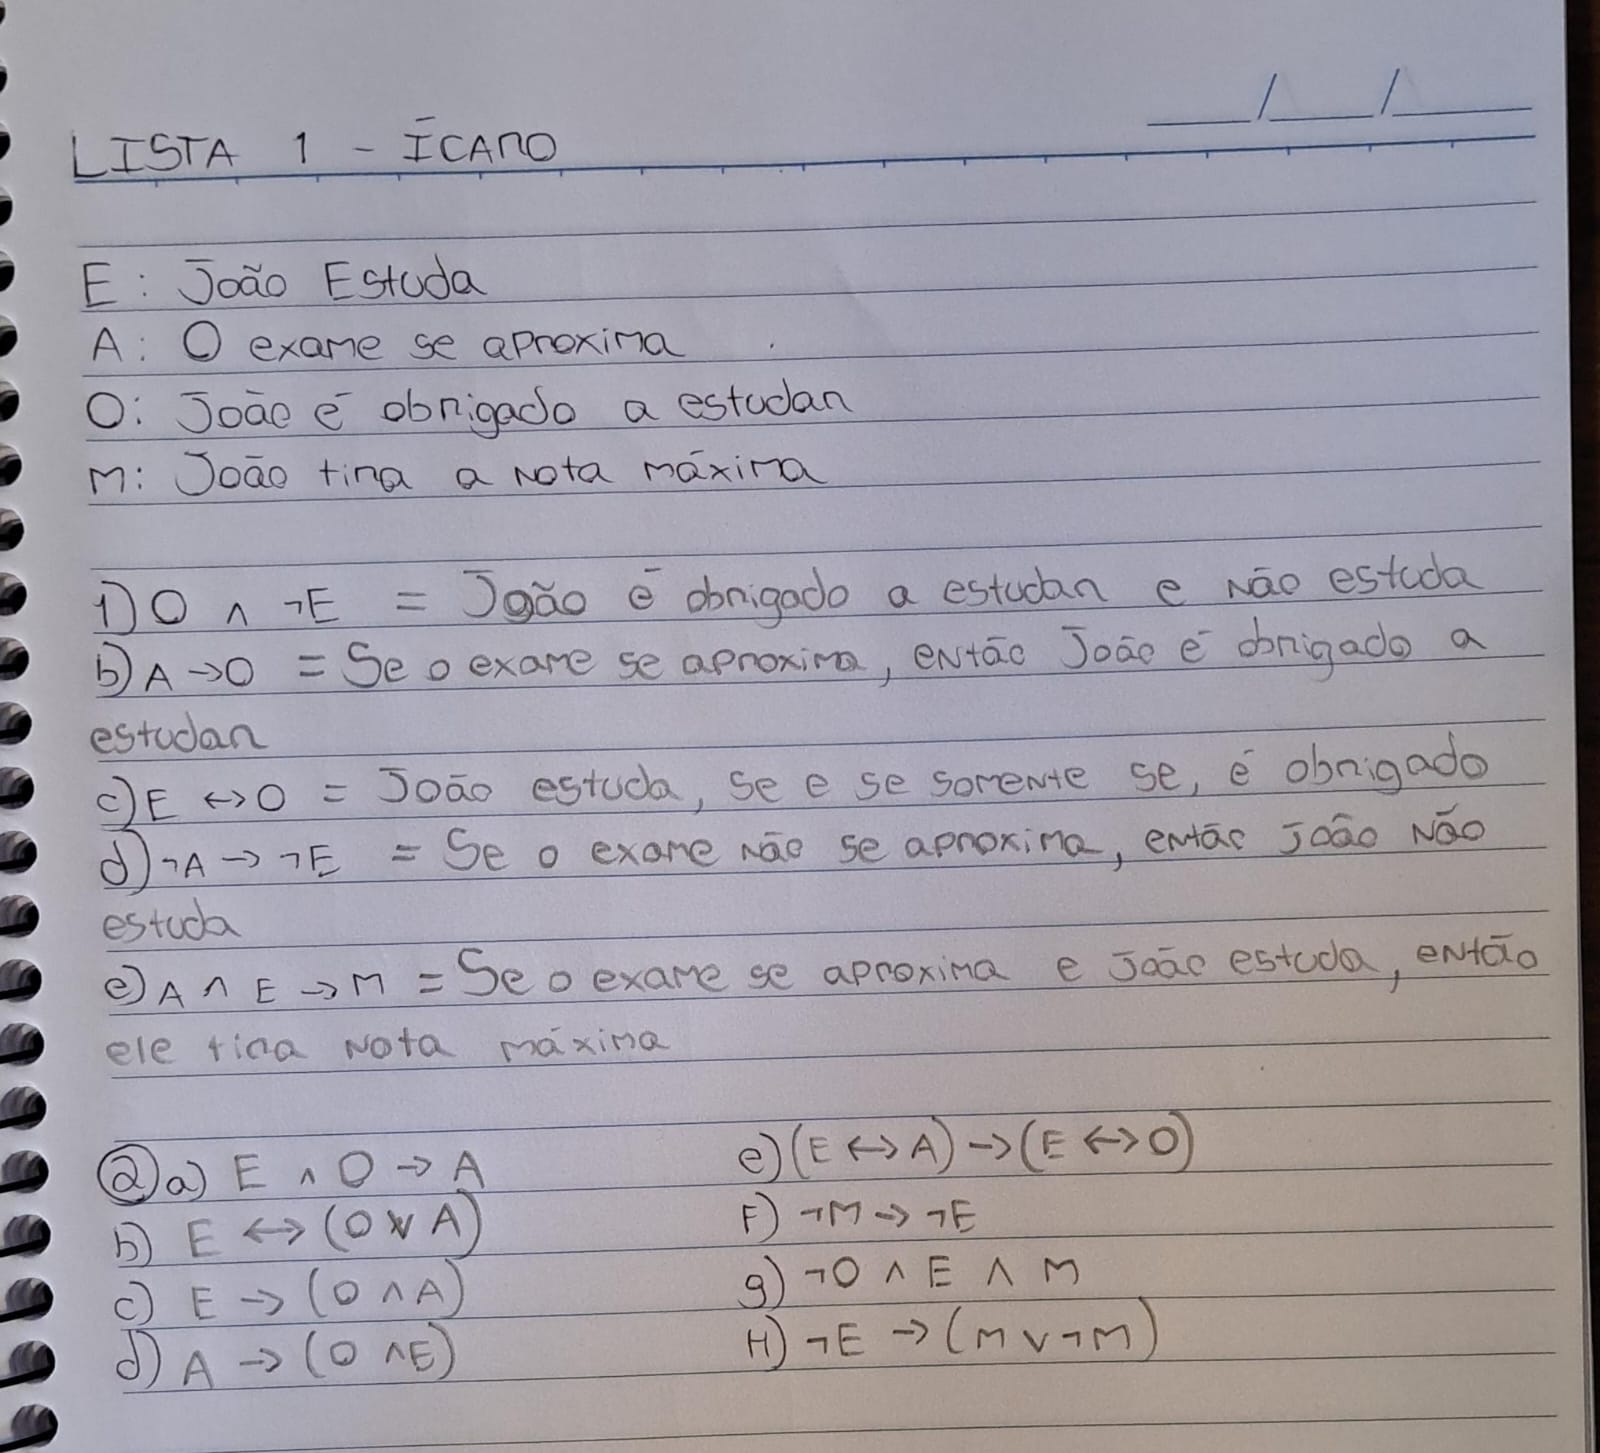 ___/___/___
LISTA 1 - ÍCARO
E: João Estuda
A: O exame se aproxima
O: João é obrigado a estudar
M: João tira a nota máxima
1) O ∧ ¬E = João é obrigado a estudar e não estuda
b) A → O = Se o exame se aproxima, então João é obrigado a
estudar
c) E ↔ O = João estuda, se e se somente se, é obrigado
d) ¬A → ¬E = Se o exame não se aproxima, então João não
estuda
e) A ∧ E → M = Se o exame se aproxima e João estuda, então
ele tira nota máxima
2) a) E ∧ O → A
b) E ↔ (O ⊻ A)
c) E → (O ∧ A)
d) A → (O ∧ E)
e) (E ↔ A) → (E ↔ O)
F) ¬M → ¬E
g) ¬O ∧ E ∧ M
H) ¬E → (M ∨ ¬M)